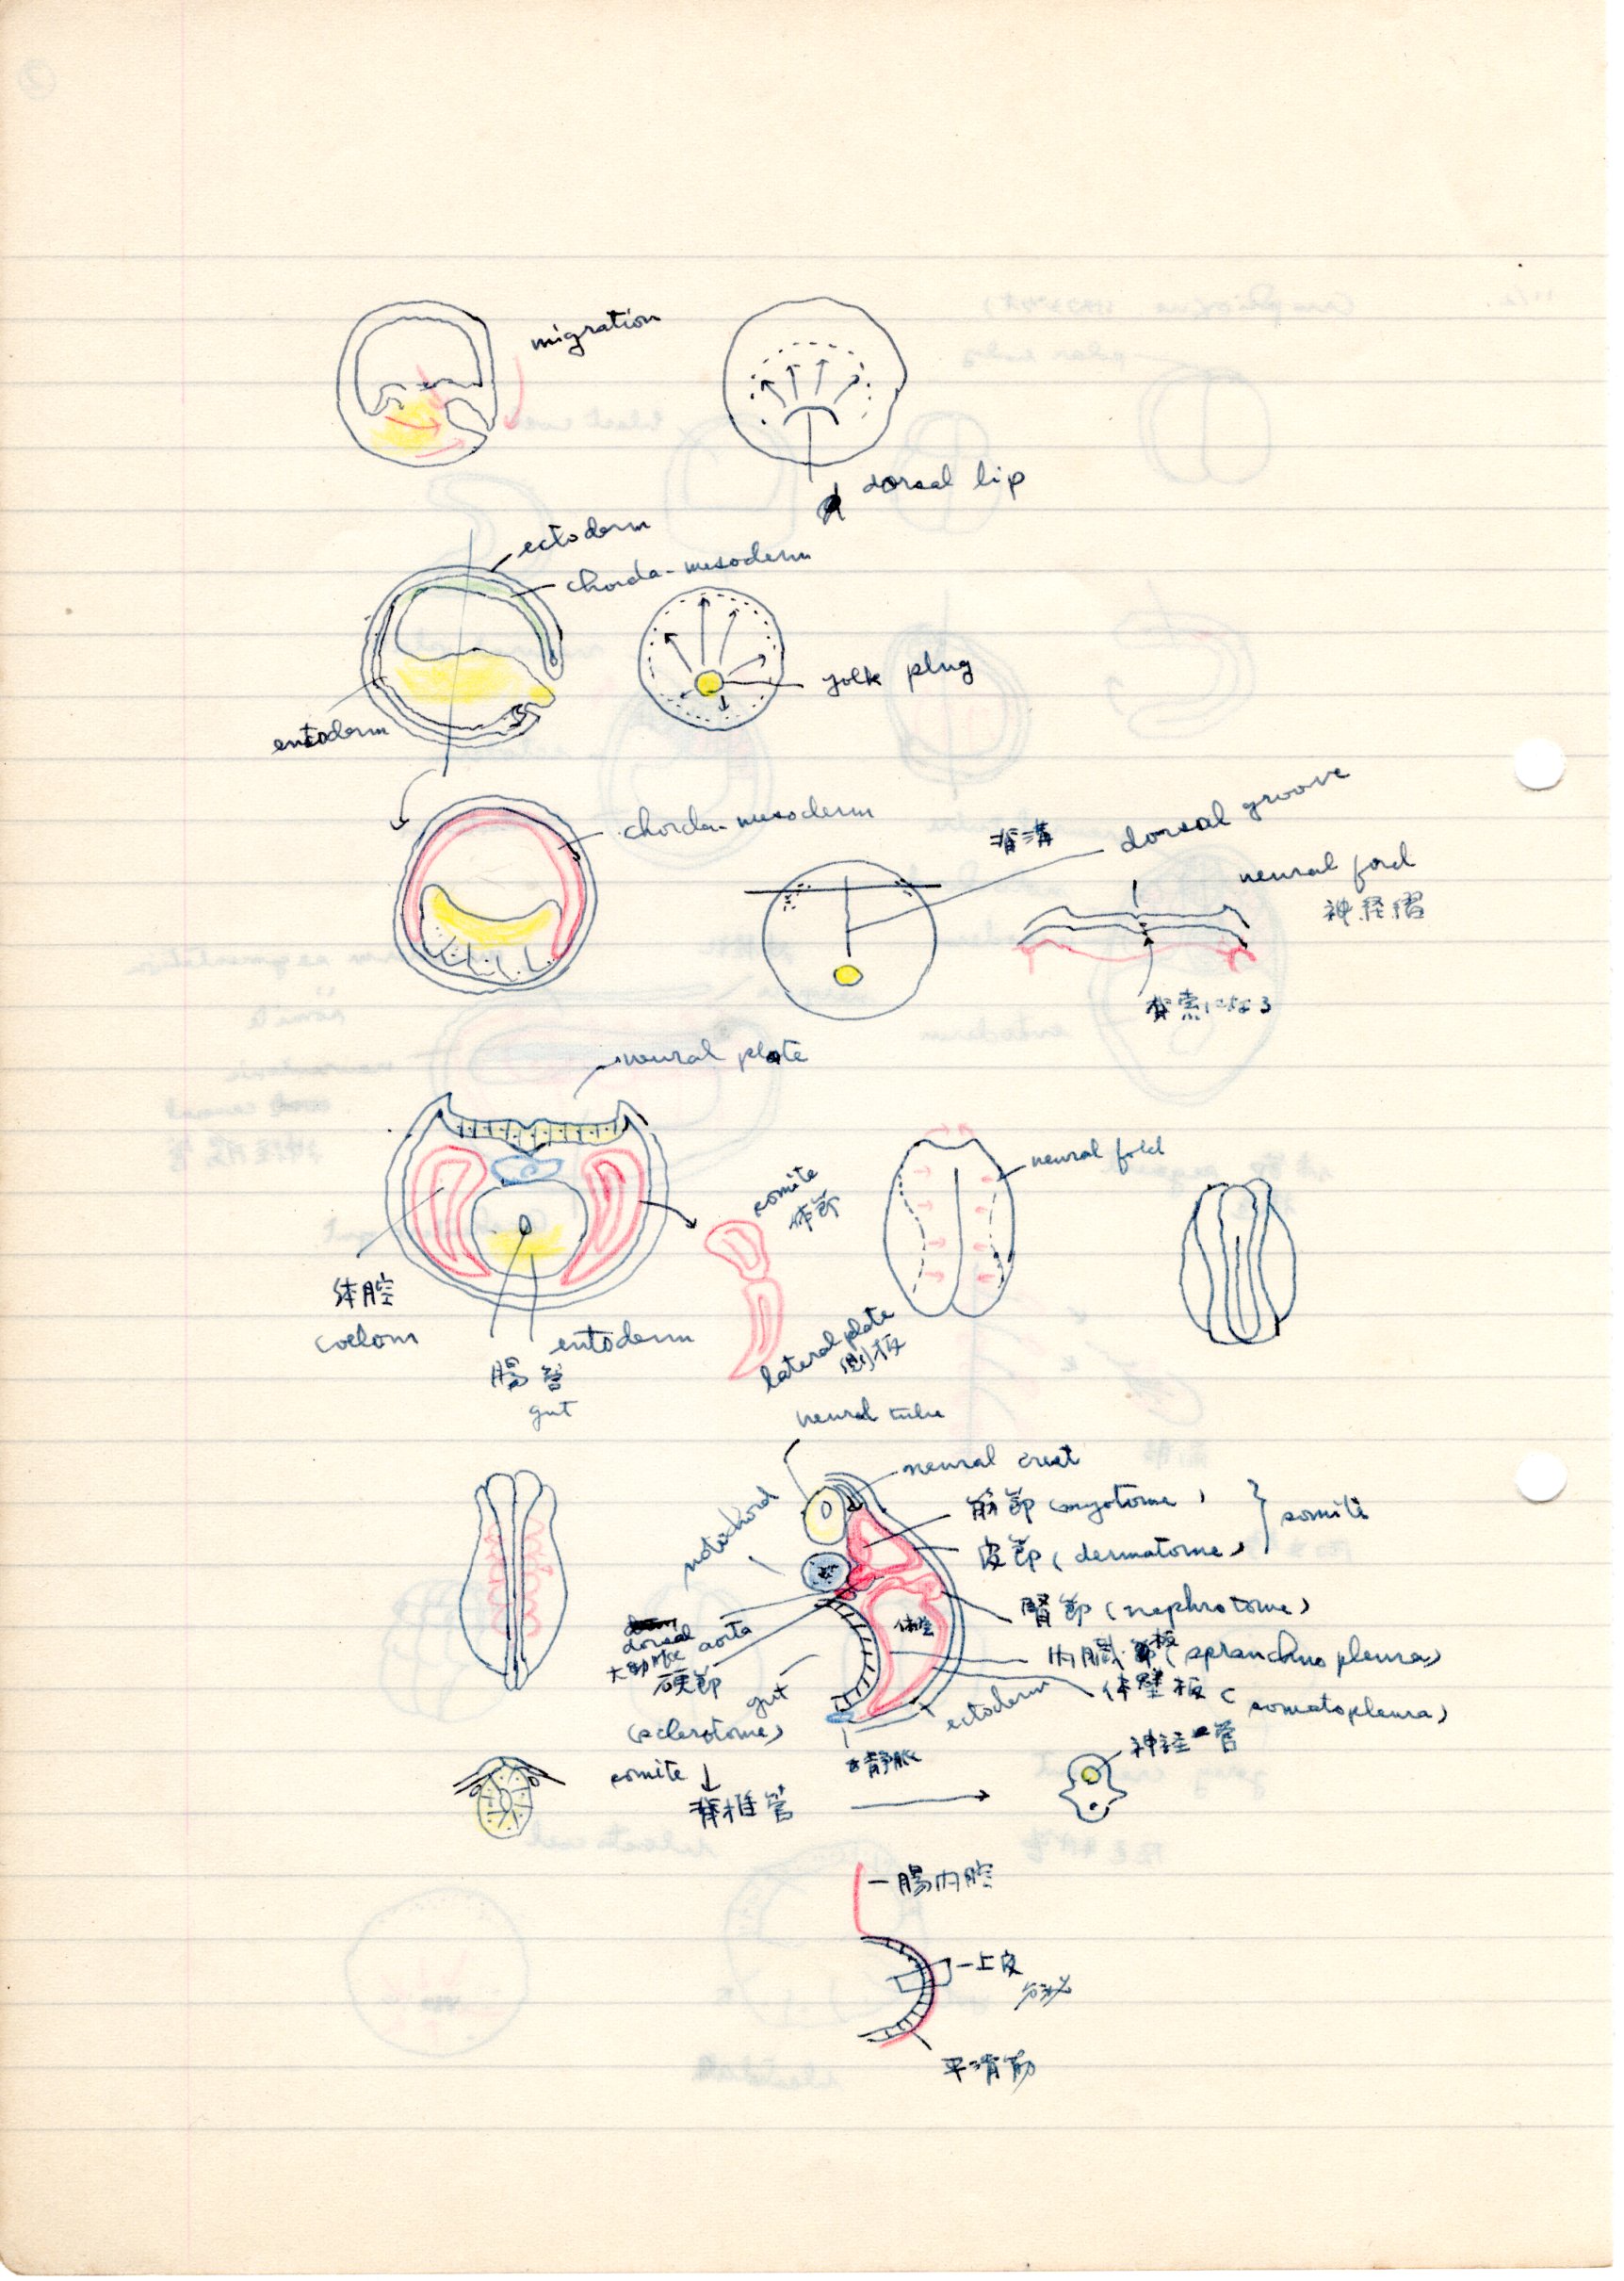 migration
dorsal lip
ectoderm
chorda-mesoderm
yolk plug
entoderm
chorda-mesoderm
背溝
dorsal groove
neural ford
神経褶
脊索になる
neural plate
neural fold
somite
体節
体腔
coelom
entoderm
腸管
gut
lateral plate
側板
neural tube
neural crest
notochord
筋節 (myotome)
somite
皮節 (dermatome)
腎節 (nephrotome)
体腔
dorsal aorta
大動脈
内臓板 (spranchnopleura)
硬節
体壁板 (somatopleura)
gut
ectoderm
(sclerotome)
静脈
神経管
somite
↓
脊椎管
腸内腔
上皮
分泌
平滑筋